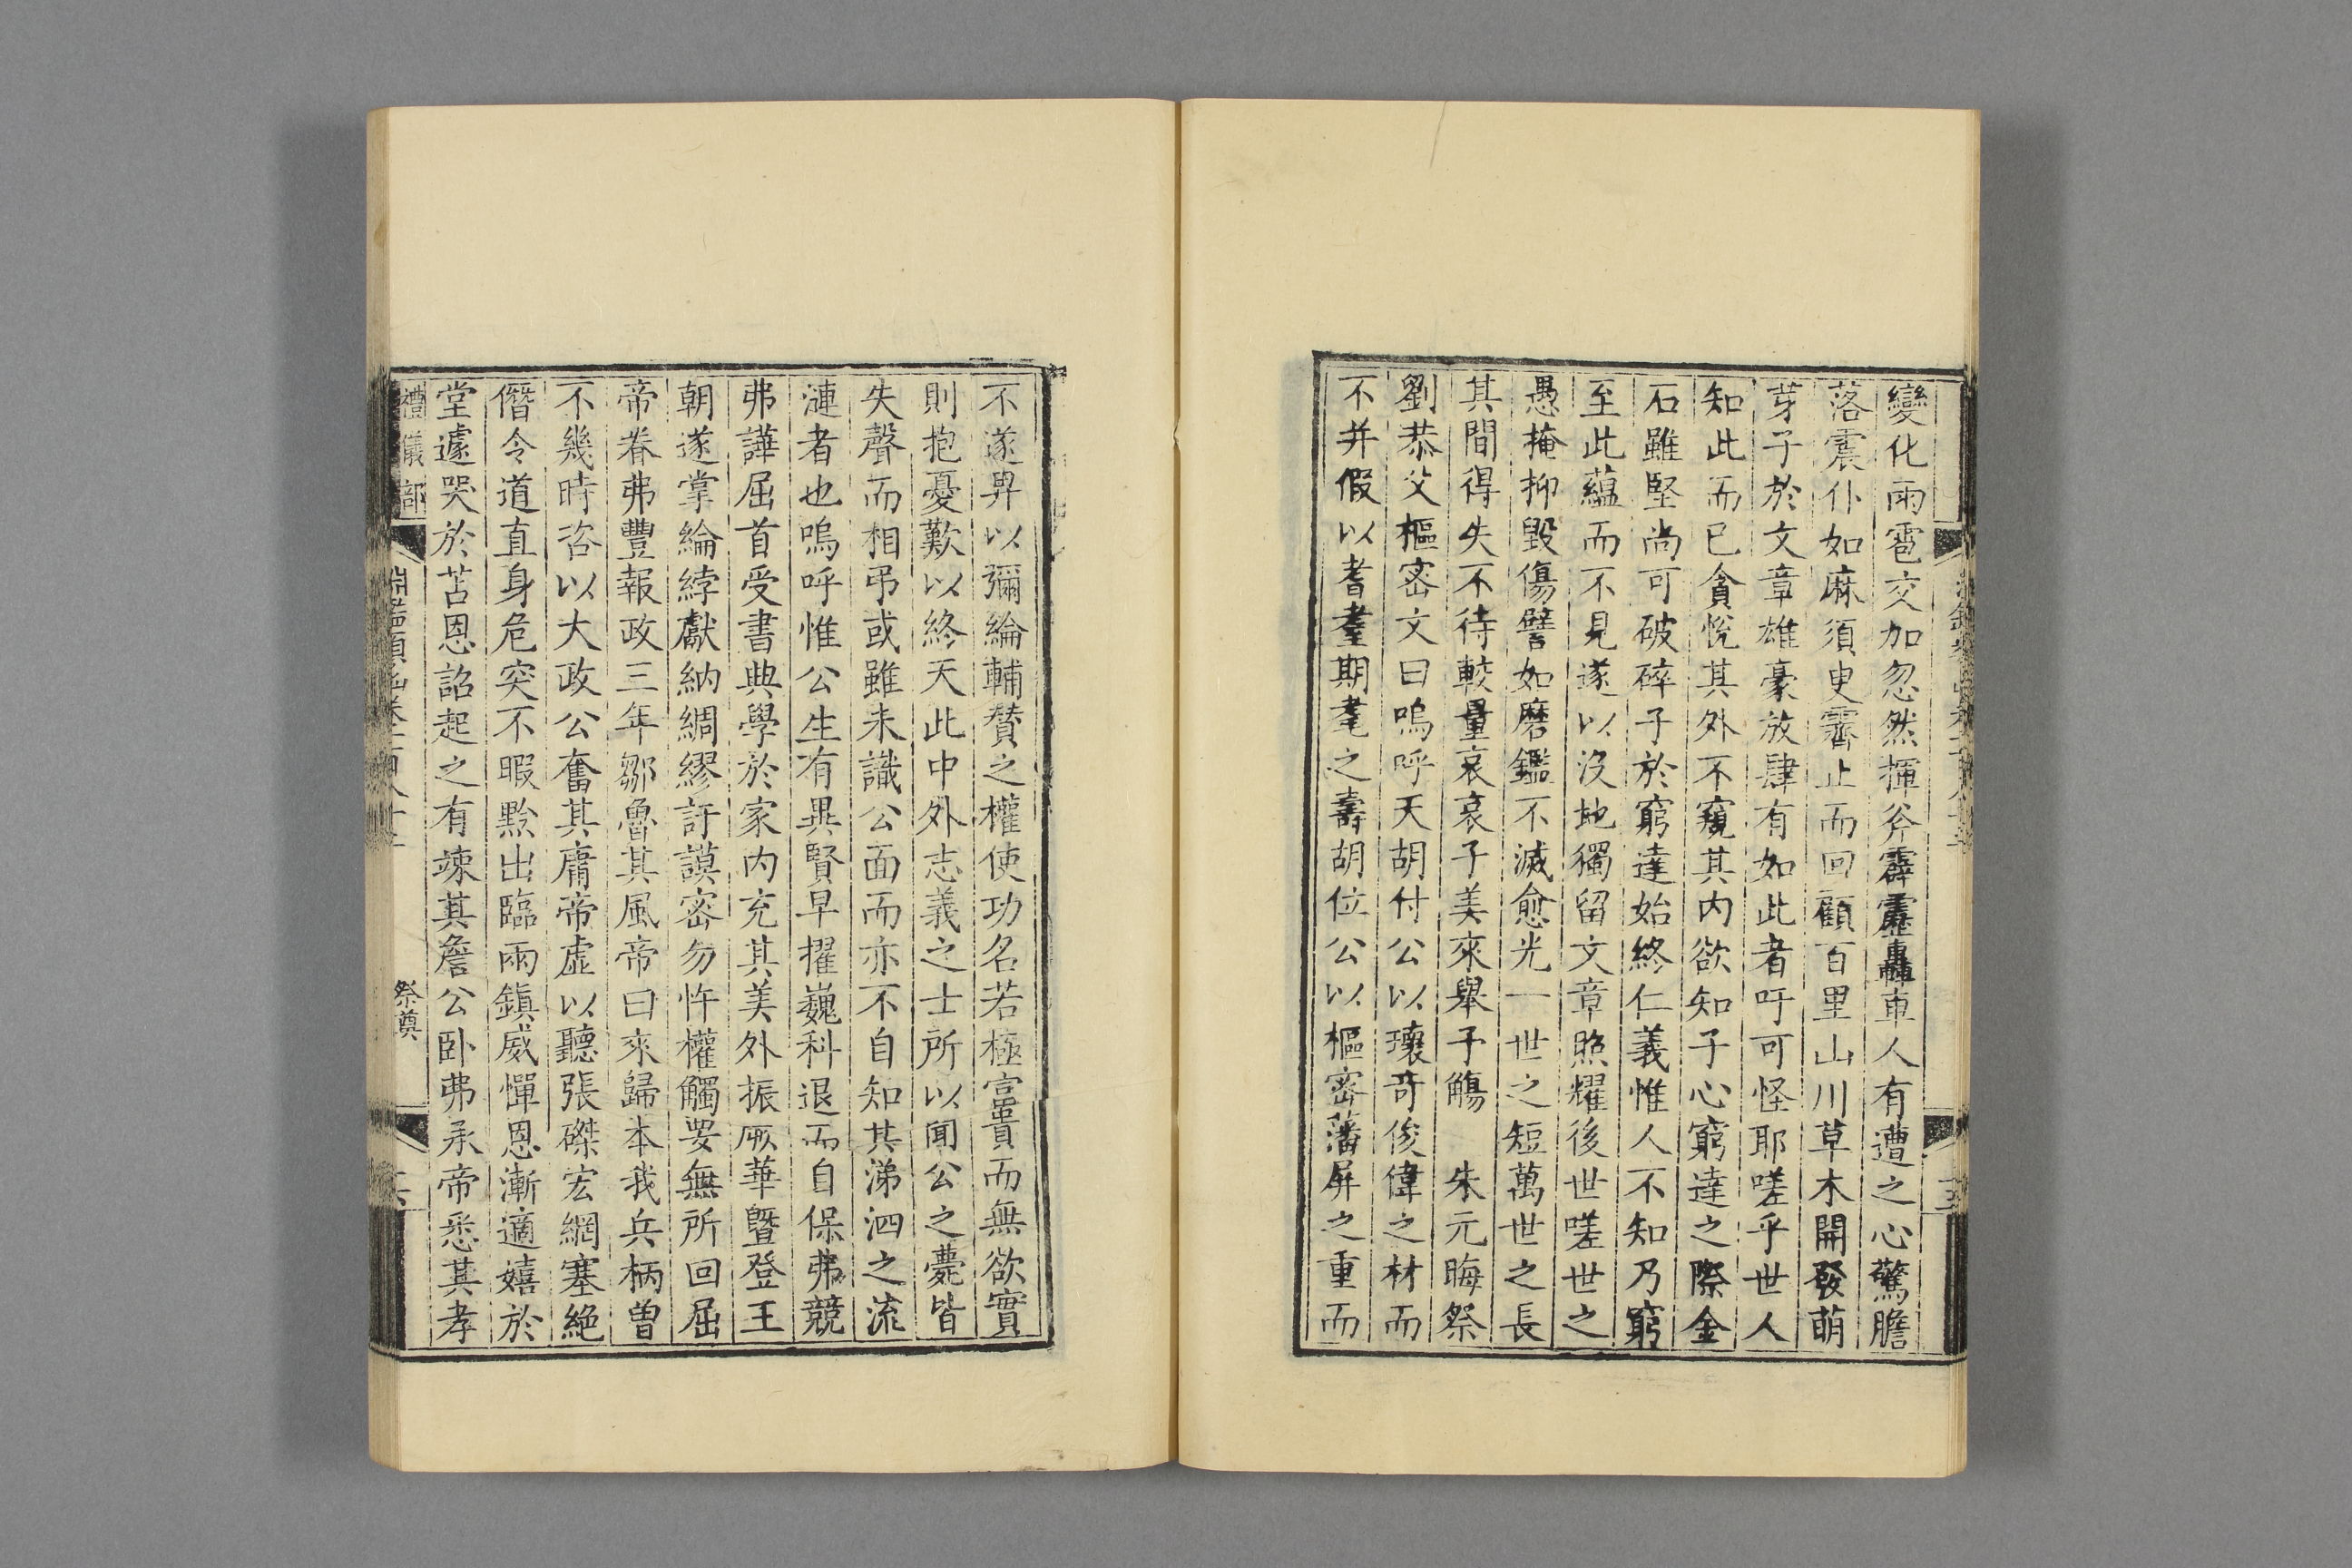 變化雨雹交加忽然揮斧霹靂轟車人有遭之心驚膽
落震仆如麻須臾霽止而回顧百里山川草木開發萌
芽子於文章雄豪放肆有如此者吁可怪耶嗟乎世人
知此而已貪悅其外不窺其内欲知子心窮達之際金
石雖堅尚可破碎子於窮達始終仁義惟人不知乃窮
至此蘊而不見遂以沒地獨留文章照耀後世嗟世之
愚掩抑毀傷譬如磨鑑不滅愈光一世之短萬世之長
其間得失不待較量哀哀子美來舉予觴　朱元晦祭
劉恭父樞密文曰嗚呼天胡付公以瓌奇俊偉之材而
不并假以耆耋期耄之壽胡位公以樞密藩屏之重而
不遂畀以彌綸輔贊之權使功名若極富貴而無欲實
則抱憂歎以終天此中外志義之士所以聞公之薨皆
失聲而相弔或雖未識公面而亦不自知其涕泗之流
漣者也嗚呼惟公生有異賢早擢巍科退而自保弗競
弗譁屈首受書典學於家内充其美外振厥華曁登王
朝遂掌綸綍獻納綢繆訏謨密勿忤權觸要無所回屈
帝眷弗豐報政三年鄒魯其風帝曰來歸本我兵柄曾
不幾時咨以大政公奮其庸帝虛以聽張磔宏綱塞絶
僭令道直身危突不暇黔出臨兩鎮威憚恩漸適嬉於
堂遽哭於苫恩詔起之有竦其詹公卧弗承帝悉其孝
禮儀部
淵鑑類函卷一百八十三
祭奠